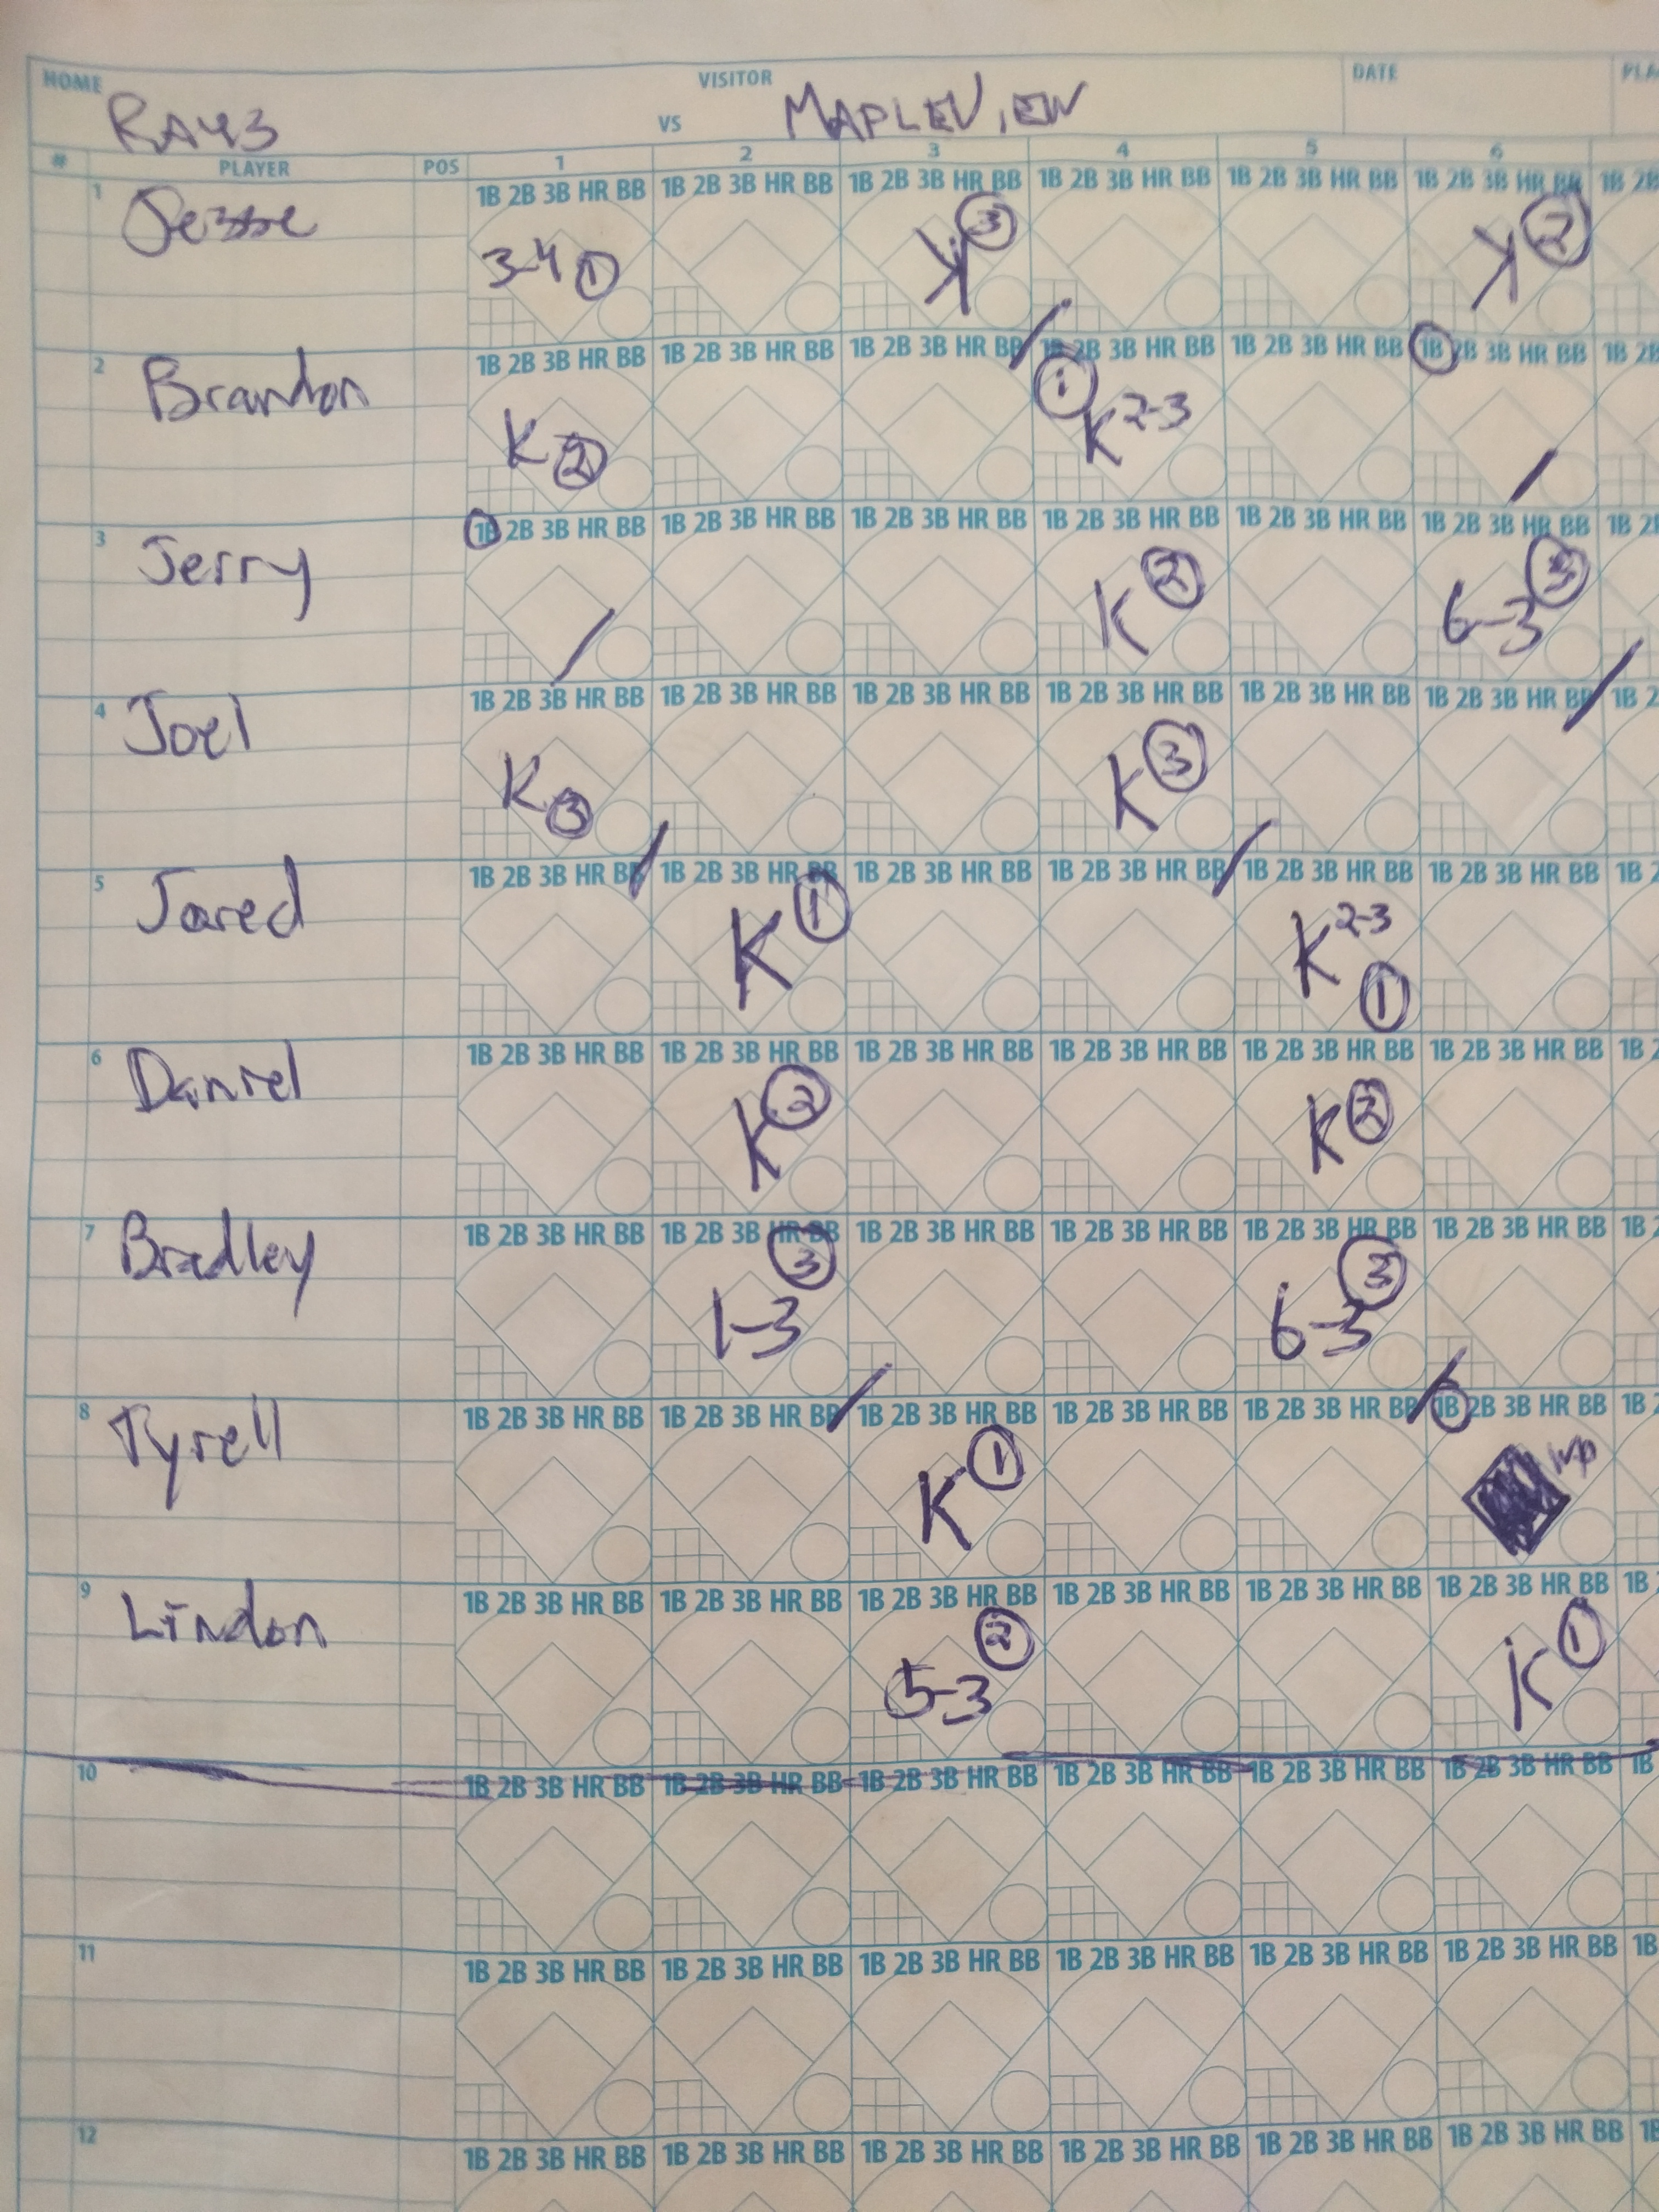 HOME VISITOR DATE PLA
RAYS VS MAPLEVIEW
# PLAYER POS 1 2 3 4 5 6
1 Jesse 1B 2B 3B HR BB 1B 2B 3B HR BB 1B 2B 3B HR BB 1B 2B 3B HR BB 1B 2B 3B HR BB 1B 2B 3B HR BB 1B 2B
3-4 1 K 3 K 2
2 Brandon 1B 2B 3B HR BB 1B 2B 3B HR BB 1B 2B 3B HR BB 1B 2B 3B HR BB 1B 2B 3B HR BB 1B 2B 3B HR BB 1B 2B
K 2 1 K 2-3
3 Jerry 1B 2B 3B HR BB 1B 2B 3B HR BB 1B 2B 3B HR BB 1B 2B 3B HR BB 1B 2B 3B HR BB 1B 2B 3B HR BB 1B 2B
K 2 6-3 3
4 Joel 1B 2B 3B HR BB 1B 2B 3B HR BB 1B 2B 3B HR BB 1B 2B 3B HR BB 1B 2B 3B HR BB 1B 2B 3B HR BB 1B 2
K 3 K 3
5 Jared 1B 2B 3B HR BB 1B 2B 3B HR BB 1B 2B 3B HR BB 1B 2B 3B HR BB 1B 2B 3B HR BB 1B 2B 3B HR BB 1B 2
K 1 K 2-3 1
6 Daniel 1B 2B 3B HR BB 1B 2B 3B HR BB 1B 2B 3B HR BB 1B 2B 3B HR BB 1B 2B 3B HR BB 1B 2B 3B HR BB 1B 2
K 2 K 2
7 Bradley 1B 2B 3B HR BB 1B 2B 3B HR BB 1B 2B 3B HR BB 1B 2B 3B HR BB 1B 2B 3B HR BB 1B 2B 3B HR BB 1B 2
1-3 3 6-3 3
8 Tyrell 1B 2B 3B HR BB 1B 2B 3B HR BB 1B 2B 3B HR BB 1B 2B 3B HR BB 1B 2B 3B HR BB 1B 2B 3B HR BB 1B 2
K 1 wp
9 Lindon 1B 2B 3B HR BB 1B 2B 3B HR BB 1B 2B 3B HR BB 1B 2B 3B HR BB 1B 2B 3B HR BB 1B 2B 3B HR BB 1B
5-3 2 K 1
10 1B 2B 3B HR BB 1B 2B 3B HR BB 1B 2B 3B HR BB 1B 2B 3B HR BB 1B 2B 3B HR BB 1B 2B 3B HR BB 1B
11 1B 2B 3B HR BB 1B 2B 3B HR BB 1B 2B 3B HR BB 1B 2B 3B HR BB 1B 2B 3B HR BB 1B 2B 3B HR BB 1B
12 1B 2B 3B HR BB 1B 2B 3B HR BB 1B 2B 3B HR BB 1B 2B 3B HR BB 1B 2B 3B HR BB 1B 2B 3B HR BB 1B